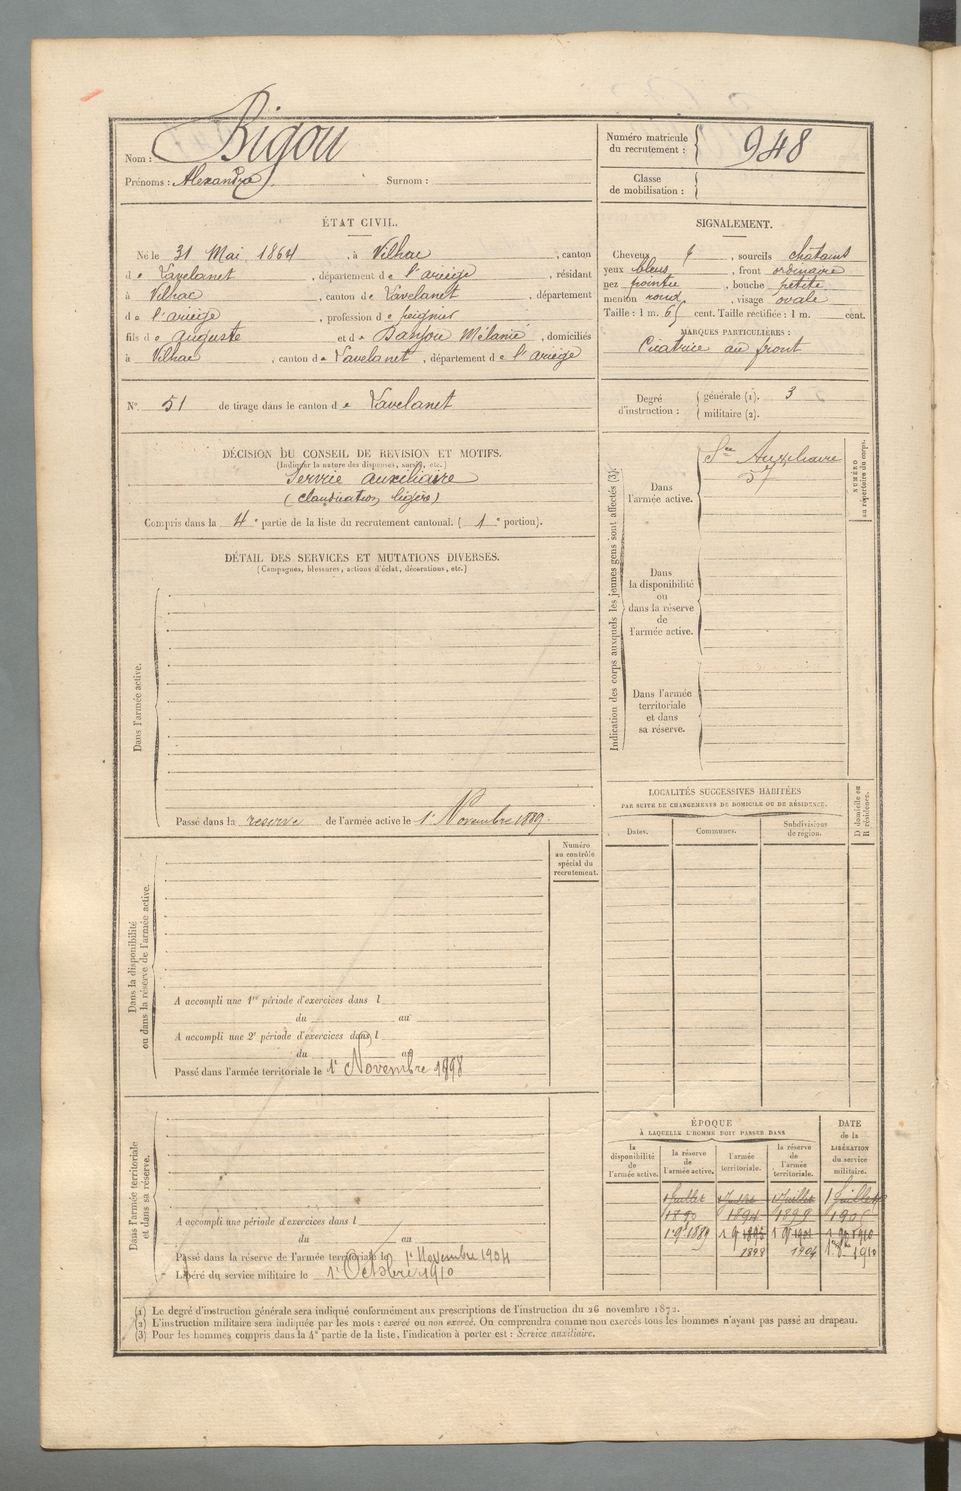 Nom : Bigou
Prénoms : Alexandre. Surnom :
Numéro matricule du recrutement : 948
Classe de mobilisation :
ÉTAT CIVIL.
Né le 31 Mai 1864, à Vilhac, canton
de Lavelanet, département de l'ariège, résidant
à Vilhac, canton de Lavelanet, département
de l'ariège, profession de peignier
fils de auguste et de Mélanie, domiciliés
à Vilhac, canton de Lavelanet, département de l'ariège
N° 51 de tirage dans le canton de Lavelanet
SIGNALEMENT.
Cheveux, sourcils châtains
yeux bleus, front ordinaire
nez pointu, bouche petite
menton rond, visage ovale
Taille : 1 m. 65 cent. Taille rectifiée : 1 m. cent.
MARQUES PARTICULIÈRES :
Cicatrice au front
Degré d'instruction : générale (1). 3
militaire (2).
DÉCISION DU CONSEIL DE REVISION ET MOTIFS.
(Indiquer la nature des dispenses, sursis, etc.)
Service auxiliaire
(claudication légère)
Compris dans la 4e partie de la liste du recrutement cantonal. (1e portion).
DÉTAIL DES SERVICES ET MUTATIONS DIVERSES.
(Campagnes, blessures, actions d'éclat, décorations, etc.)
Dans l'armée active.
Passé dans la reserve de l'armée active le 1r Novembre 1889.
Numéro au contrôle spécial du recrutement.
Dans la disponibilité ou dans la réserve de l'armée active.
A accompli une 1re période d'exercices dans l
du au
A accompli une 2e période d'exercices dans l
du au
Passé dans l'armée territoriale le 1r Novembre 1898
Dans l'armée territoriale et dans sa réserve.
A accompli une période d'exercices dans l
du au
Passé dans la réserve de l'armée territoriale le 1r Novembre 1904
Libéré du service militaire le 1r Octobre 1910
Indication des corps auxquels les jeunes gens sont affectés (3).
Dans l'armée active.
Sce Auxiliaire
57
NUMÉRO au répertoire du corps.
Dans la disponibilité ou dans la réserve de l'armée active.
Dans l'armée territoriale et dans sa réserve.
LOCALITÉS SUCCESSIVES HABITÉES
PAR SUITE DE CHANGEMENTS DE DOMICILE OU DE RÉSIDENCE.
D domicile ou R résidence.
Dates. Communes. Subdivisions de région.
ÉPOQUE
À LAQUELLE L'HOMME DOIT PASSER DANS
DATE de la LIBÉRATION du service militaire.
la disponibilité de l'armée active. la réserve de l'armée active. l'armée territoriale. la réserve de l'armée territoriale.
1 Juillet 1 Juillet 1 Juillet 1 Juillet
1890 1894 1899 1905
1 9b 1889 1 9 1895 1 9b 1901 1910
1898 1904 1r 8bre 1910
(1) Le degré d'instruction générale sera indiqué conformément aux prescriptions de l'instruction du 26 novembre 1872.
(2) L'instruction militaire sera indiquée par les mots : exercé ou non exercé. On comprendra comme non exercés tous les hommes n'ayant pas passé au drapeau.
(3) Pour les hommes compris dans la 4e partie de la liste, l'indication à porter est : Service auxiliaire.